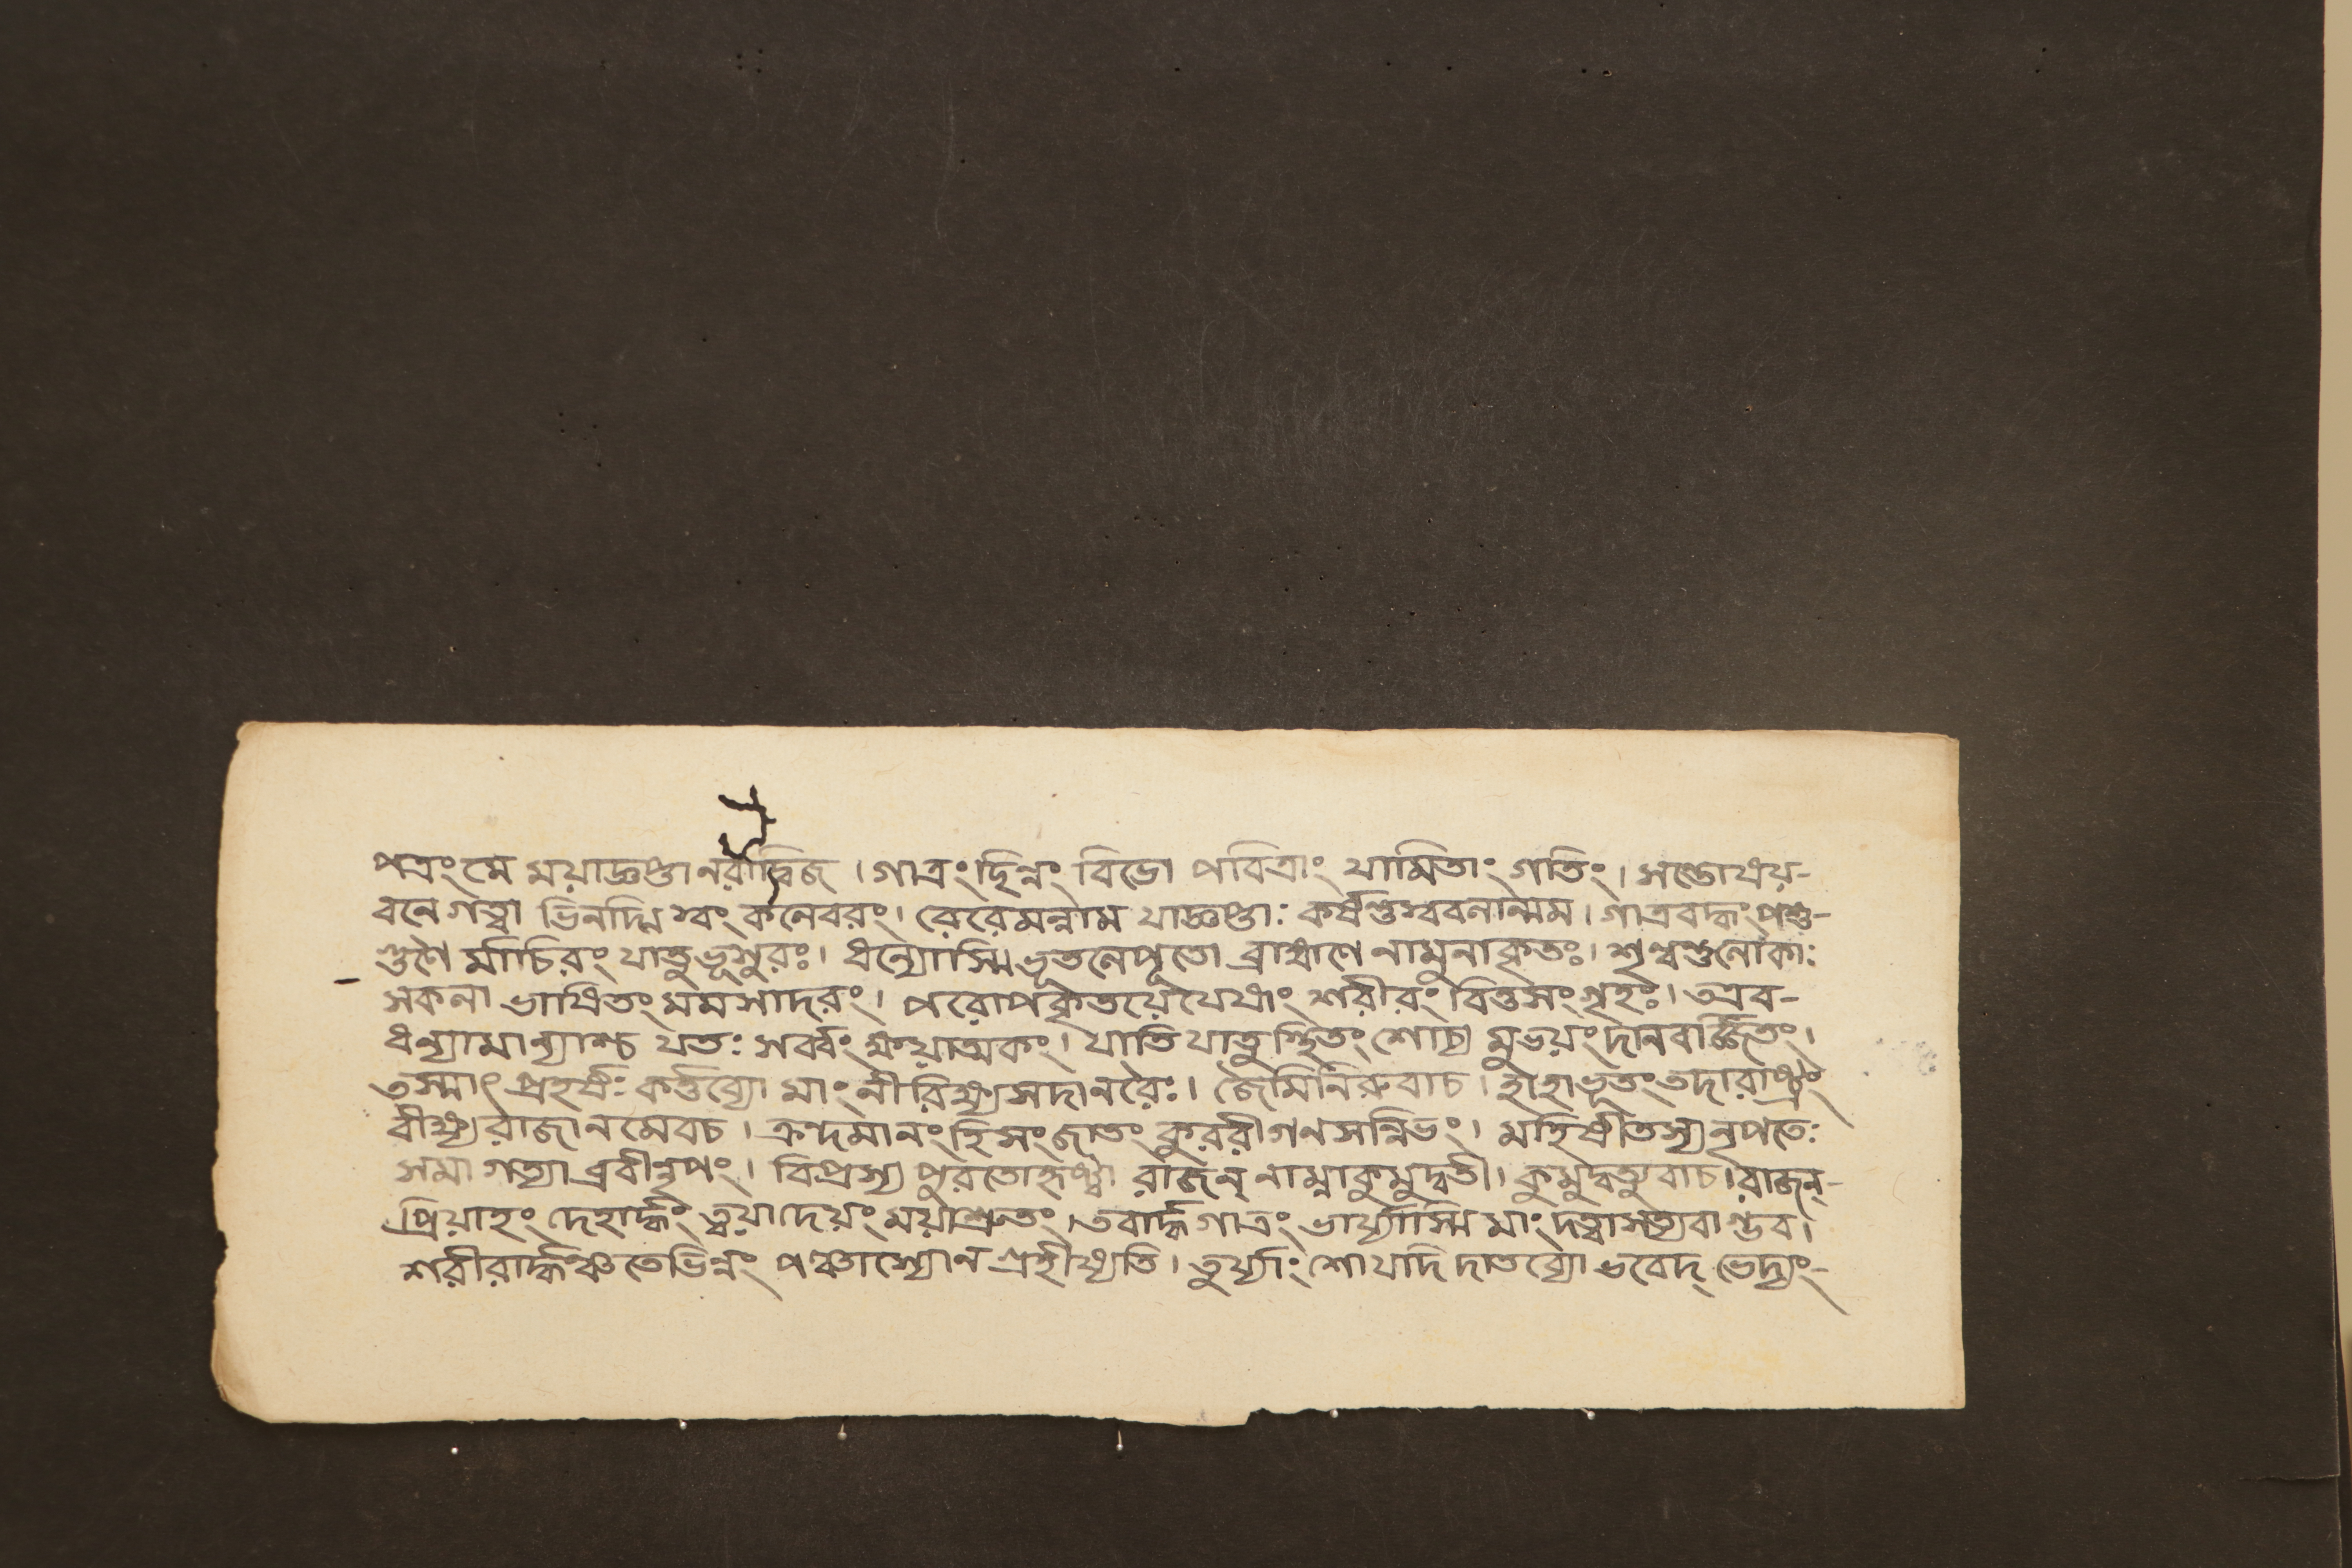 পত্রং মে ময়াজ্ঞপ্তা নরাদ্বিজ । গাত্রংছিন্নং বিভো পবিত্রাং যামিতাং গতিং । সভোষয়-
বনে গত্বা ভিনদ্মি স্বং কলেবরং । রেরেমন্নাম যাজ্ঞপ্তাঃ কর্ষন্তুস্ববলান্মম । গাত্রবদ্ধং পশু-
গুণৈ র্মাচিরং যাতুভূসুরঃ । ধন্যোস্মি ভূতলেপূতো ব্রাহ্মণে নামুনাকৃতঃ । শৃণ্বন্তুলোকাঃ
সকলা ভাষিতং মমসাদরং । পরোপকৃতয়েযেষাং শরীরং বিত্তসংগৃহঃ । তএব-
ধন্যামান্যাশ্চ যতঃ সর্ব্বং ক্ষয়াত্মকং । যাতি যাতুস্থিতং শোচ্য মুভয়ংদানবর্জ্জিতং ।
তস্মাৎ প্রহর্ষঃ কর্ত্তব্যো মাং নীরিক্ষ্যসদানরৈঃ । জৈমিনিরুবাচ । হাহাভূতংতদারাষ্ট্রং
বীক্ষ্যরাজানমেবচ । ক্রন্দমানংহিসংজাতং কুররীগণসন্নিভং । মহিষীতস্যনৃপতেঃ
সমাগত্যাব্রবীন্নৃপং । বিপ্রস্য পুরতোহৃষ্টা রাজন্ নাম্নাকুমুদ্বতী । কুমুদ্বত্যুবাচ । রাজন্-
প্রিয়াহং দেহার্দ্ধং ত্বয়াদেয়ং ময়াশ্রুতং । তবার্দ্ধগাত্রং ভার্য্যাস্মি মাং দত্বাসত্যবাগ্ভব ।
শরীরার্দ্ধঞ্চতেভিন্নং পঞ্চাস্যোন গ্রহীষ্যতি । যদি দাতব্যো ভবেদ্ ভেদ্যং-